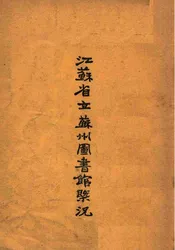 江蘇省立蘇州圖書館槩況